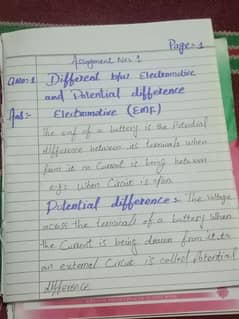 Page=1
Assignment No: 1
Qno=1 Different b/w Electromotive
and Potential difference
Ans= Electromotive (EMF)
The emf of a battery is the Potential
difference between its terminals when
no Current is being between
e.g: When Circuit is open
Potential difference= The voltage
across the terminals of a battery when
the Current is being drawn from it to
an external Circuit is called potential
difference